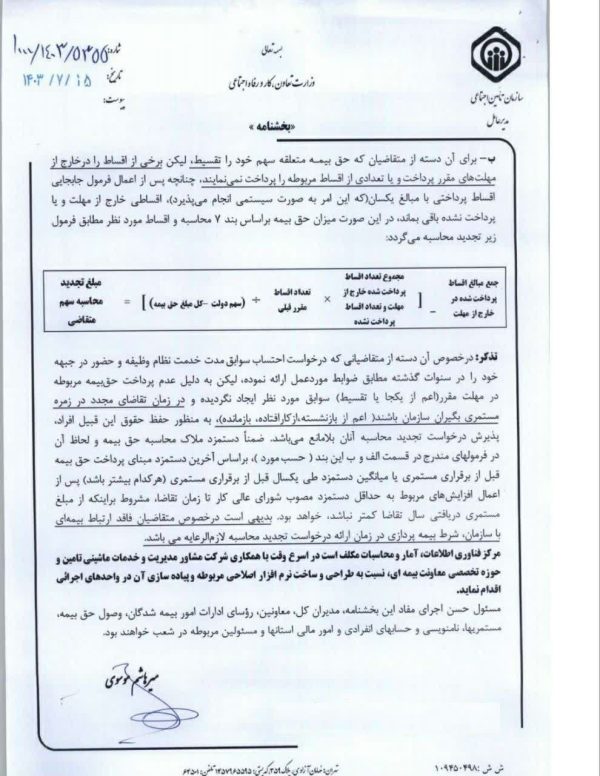 بسمه تعالی
وزارت تعاون، کار و رفاه اجتماعی
سازمان تأمین اجتماعی
مدیرعامل
شماره: ۱۰۰۰/۱۴۰۳/۵۳۵۵
تاریخ: ۱۴۰۳/۷/۱۵
پیوست:
«بخشنامه»
ب- برای آن دسته از متقاضیان که حق بیمه متعلقه سهم خود را تقسیط، لیکن برخی از اقساط را درخارج از
مهلت‌های مقرر پرداخت و یا تعدادی از اقساط مربوطه را پرداخت نمی‌نمایند، چنانچه پس از اعمال فرمول جابجایی
اقساط پرداختی با مبالغ یکسان(که این امر به صورت سیستمی انجام می‌پذیرد)، اقساطی خارج از مهلت و یا
پرداخت نشده باقی بماند، در این صورت میزان حق بیمه براساس بند ۷ محاسبه و اقساط مورد نظر مطابق فرمول
زیر تجدید محاسبه می‌گردد:
جمع مبالغ اقساط
پرداخت شده در
خارج از مهلت
–
[
مجموع تعداد اقساط
پرداخت شده خارج از
مهلت و تعداد اقساط
پرداخت نشده
×
تعداد اقساط
مقرر قبلی
÷
(سهم دولت –کل مبلغ حق بیمه) ]
=
مبلغ تجدید
محاسبه سهم
متقاضی
تذکر: درخصوص آن دسته از متقاضیانی که درخواست احتساب سوابق مدت خدمت نظام وظیفه و حضور در جبهه
خود را در سنوات گذشته مطابق ضوابط موردعمل ارائه نموده، لیکن به دلیل عدم پرداخت حق‌بیمه مربوطه
در مهلت مقرر(اعم از یکجا یا تقسیط) سوابق مورد نظر ایجاد نگردیده و در زمان تقاضای مجدد در زمره
مستمری بگیران سازمان باشند( اعم از بازنشسته،ازکارافتاده، بازمانده)، به منظور حفظ حقوق این قبیل افراد،
پذیرش درخواست تجدید محاسبه آنان بلامانع می‌باشد. ضمناً دستمزد ملاک محاسبه حق بیمه و لحاظ آن
در فرمولهای مندرج در قسمت الف و ب این بند ( حسب مورد )، براساس آخرین دستمزد مبنای پرداخت حق بیمه
قبل از برقراری مستمری یا میانگین دستمزد طی یکسال قبل از برقراری مستمری (هرکدام بیشتر باشد) پس از
اعمال افزایش‌های مربوط به حداقل دستمزد مصوب شورای عالی کار تا زمان تقاضا، مشروط براینکه از مبلغ
مستمری دریافتی سال تقاضا کمتر نباشد، خواهد بود. بدیهی است درخصوص متقاضیان فاقد ارتباط بیمه‌ای
با سازمان، شرط بیمه پردازی در زمان ارائه درخواست تجدید محاسبه لازم‌الرعایه می باشد.
مرکز فناوری اطلاعات، آمار و محاسبات مکلف است در اسرع وقت با همکاری شرکت مشاور مدیریت و خدمات ماشینی تامین و
حوزه تخصصی معاونت بیمه ای، نسبت به طراحی و ساخت نرم افزار اصلاحی مربوطه و پیاده سازی آن در واحدهای اجرائی
اقدام نماید.
مسئول حسن اجرای مفاد این بخشنامه، مدیران کل، معاونین، رؤسای ادارات امور بیمه شدگان، وصول حق بیمه،
مستمریها، نامنویسی و حسابهای انفرادی و امور مالی استانها و مسئولین مربوطه در شعب خواهند بود.
میرهاشم موسوی
ش ش: ۱۰۹۴۵۰۴۹۸